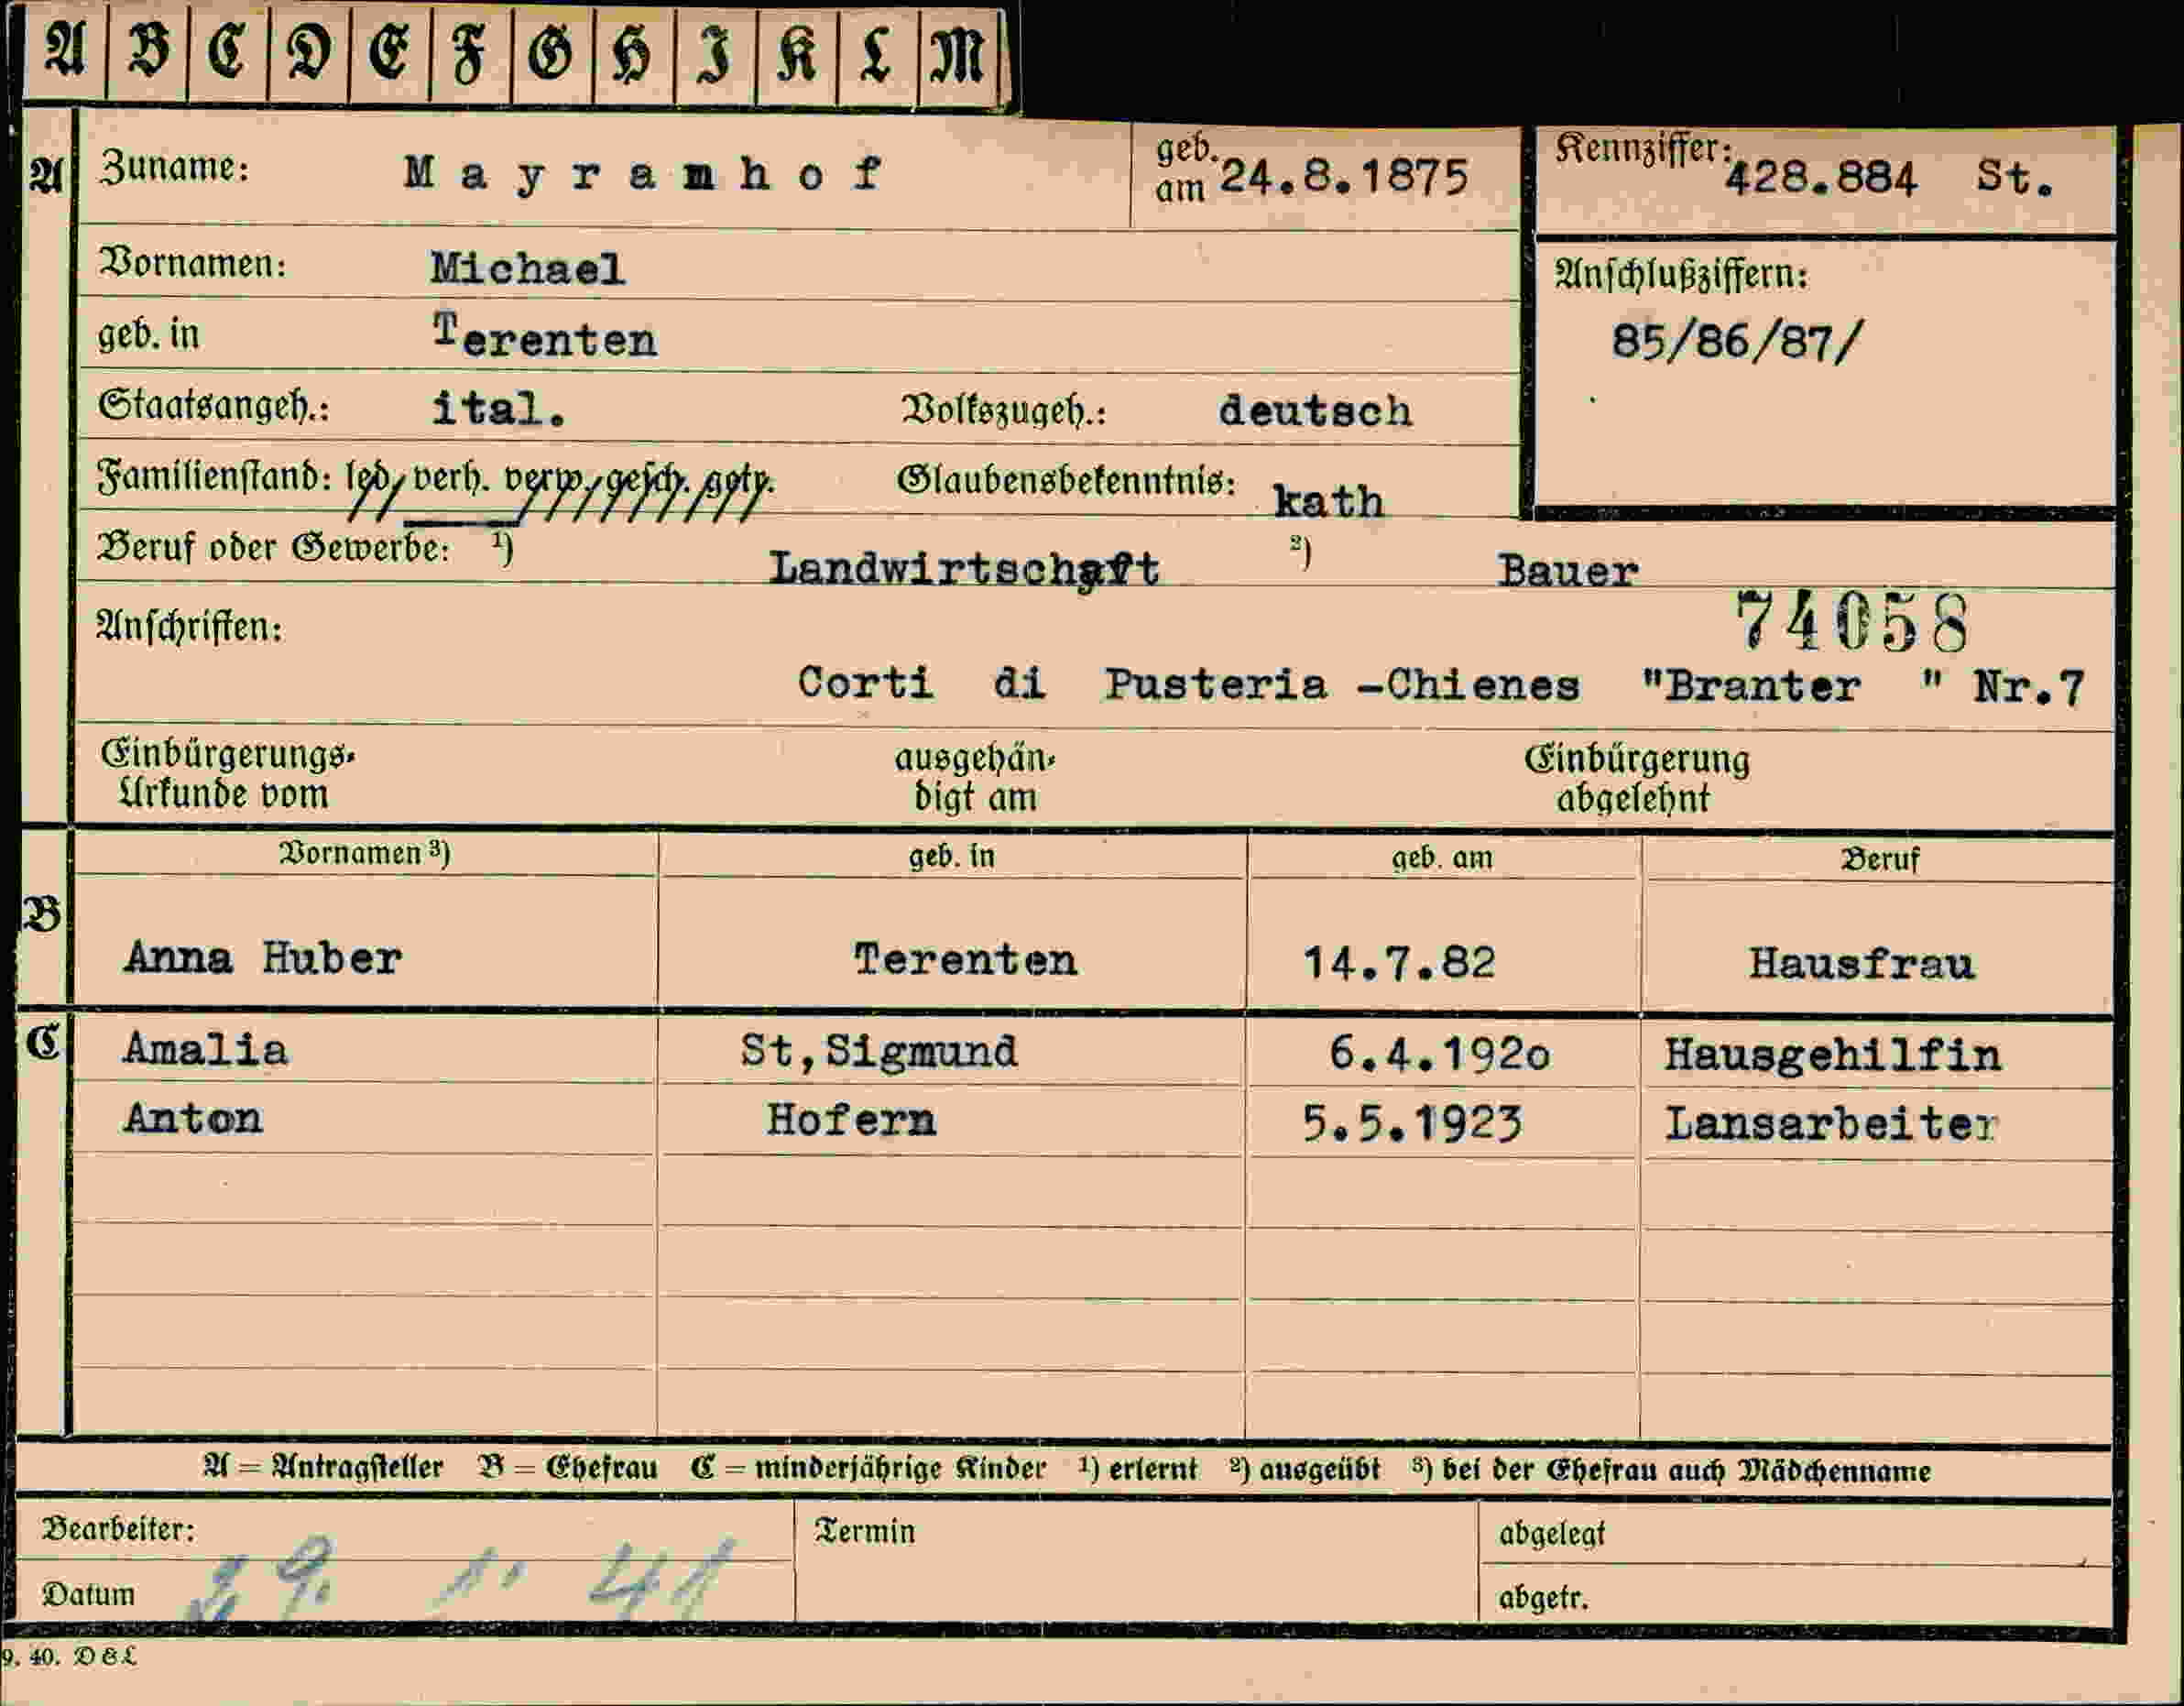 A B C D E F G H I K L M
A Zuname: Mayramhof geb. am 24.8.1875 Kennziffer: 428.884 St.
Vornamen: Michael Anschlußziffern:
geb. in Terenten 85/86/87/
Staatsangeh.: ital. Volkszugeh.: deutsch
Familienstand: led, verh. verw., gesch. getr. Glaubensbekenntnis: kath
Beruf oder Gewerbe: 1) Landwirtschaft 2) Bauer
74058
Anschriften:
Corti di Pusteria -Chienes "Branter " Nr.7
Einbürgerungs- ausgehän- Einbürgerung
Urkunde vom digt am abgelehnt
Vornamen 3) geb. in geb. am Beruf
B
Anna Huber Terenten 14.7.82 Hausfrau
C Amalia St,Sigmund 6.4.192o Hausgehilfin
Anton Hofern 5.5.1923 Lansarbeiter
A = Antragsteller B = Ehefrau C = minderjährige Kinder 1) erlernt 2) ausgeübt 3) bei der Ehefrau auch Mädchenname
Bearbeiter: Termin abgelegt
Datum 1. 41 abgetr.
9. 40. D&L